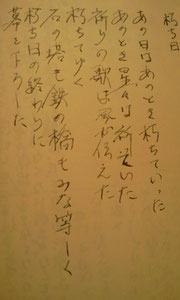 朽ち日
あの日はあのとき朽ちていった
あのとき星々は いた
祈りの歌は風が伝えた
朽ちてゆく
石の塔も鉄の橋もみな等しく
朽ち日の終わりに
幕を下ろした